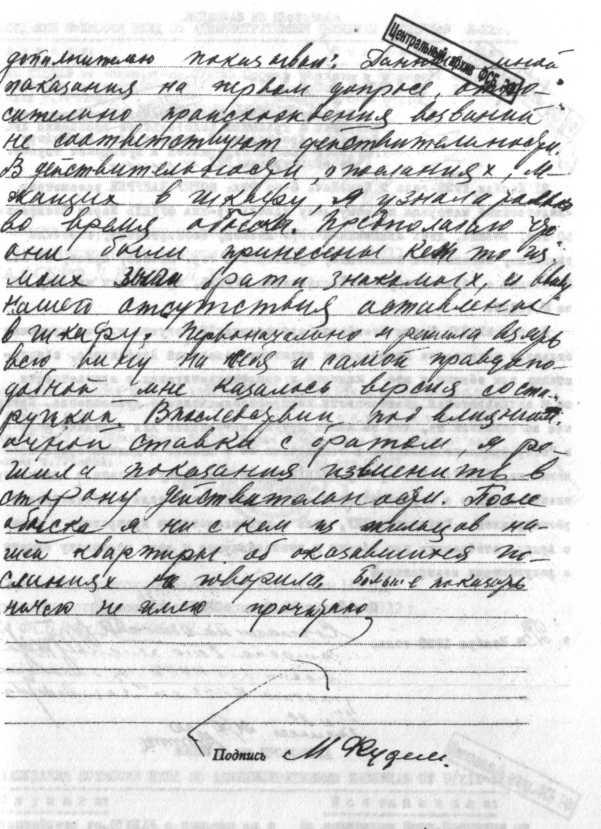 Центральный архив ФСБ
дополнительно показываю: Данные мной
показания на первом допросе, отно-
сительно происхождения воззваний
не соответствуют действительности.
В действительности, о посланиях, ле-
жащих в шкафу, я узнала только
во время обыска. Предполагаю что
они были принесены кем то из
моих или брата знакомых, и ввиду
нашего отсутствия оставлены
в шкафу. Первоначально я решила взять
всю вину на себя и самой правдопо-
добной мне казалась версия со ста-
рушкой. Впоследствии, под влиянием
очной ставки с братом, я ре-
шила показания изменить в
сторону действительности. После
обыска я ни с кем из жильцов на-
шей квартиры об оказавшихся по-
сланиях не говорила. Больше показать
ничего не имею прочитано
Подпись М